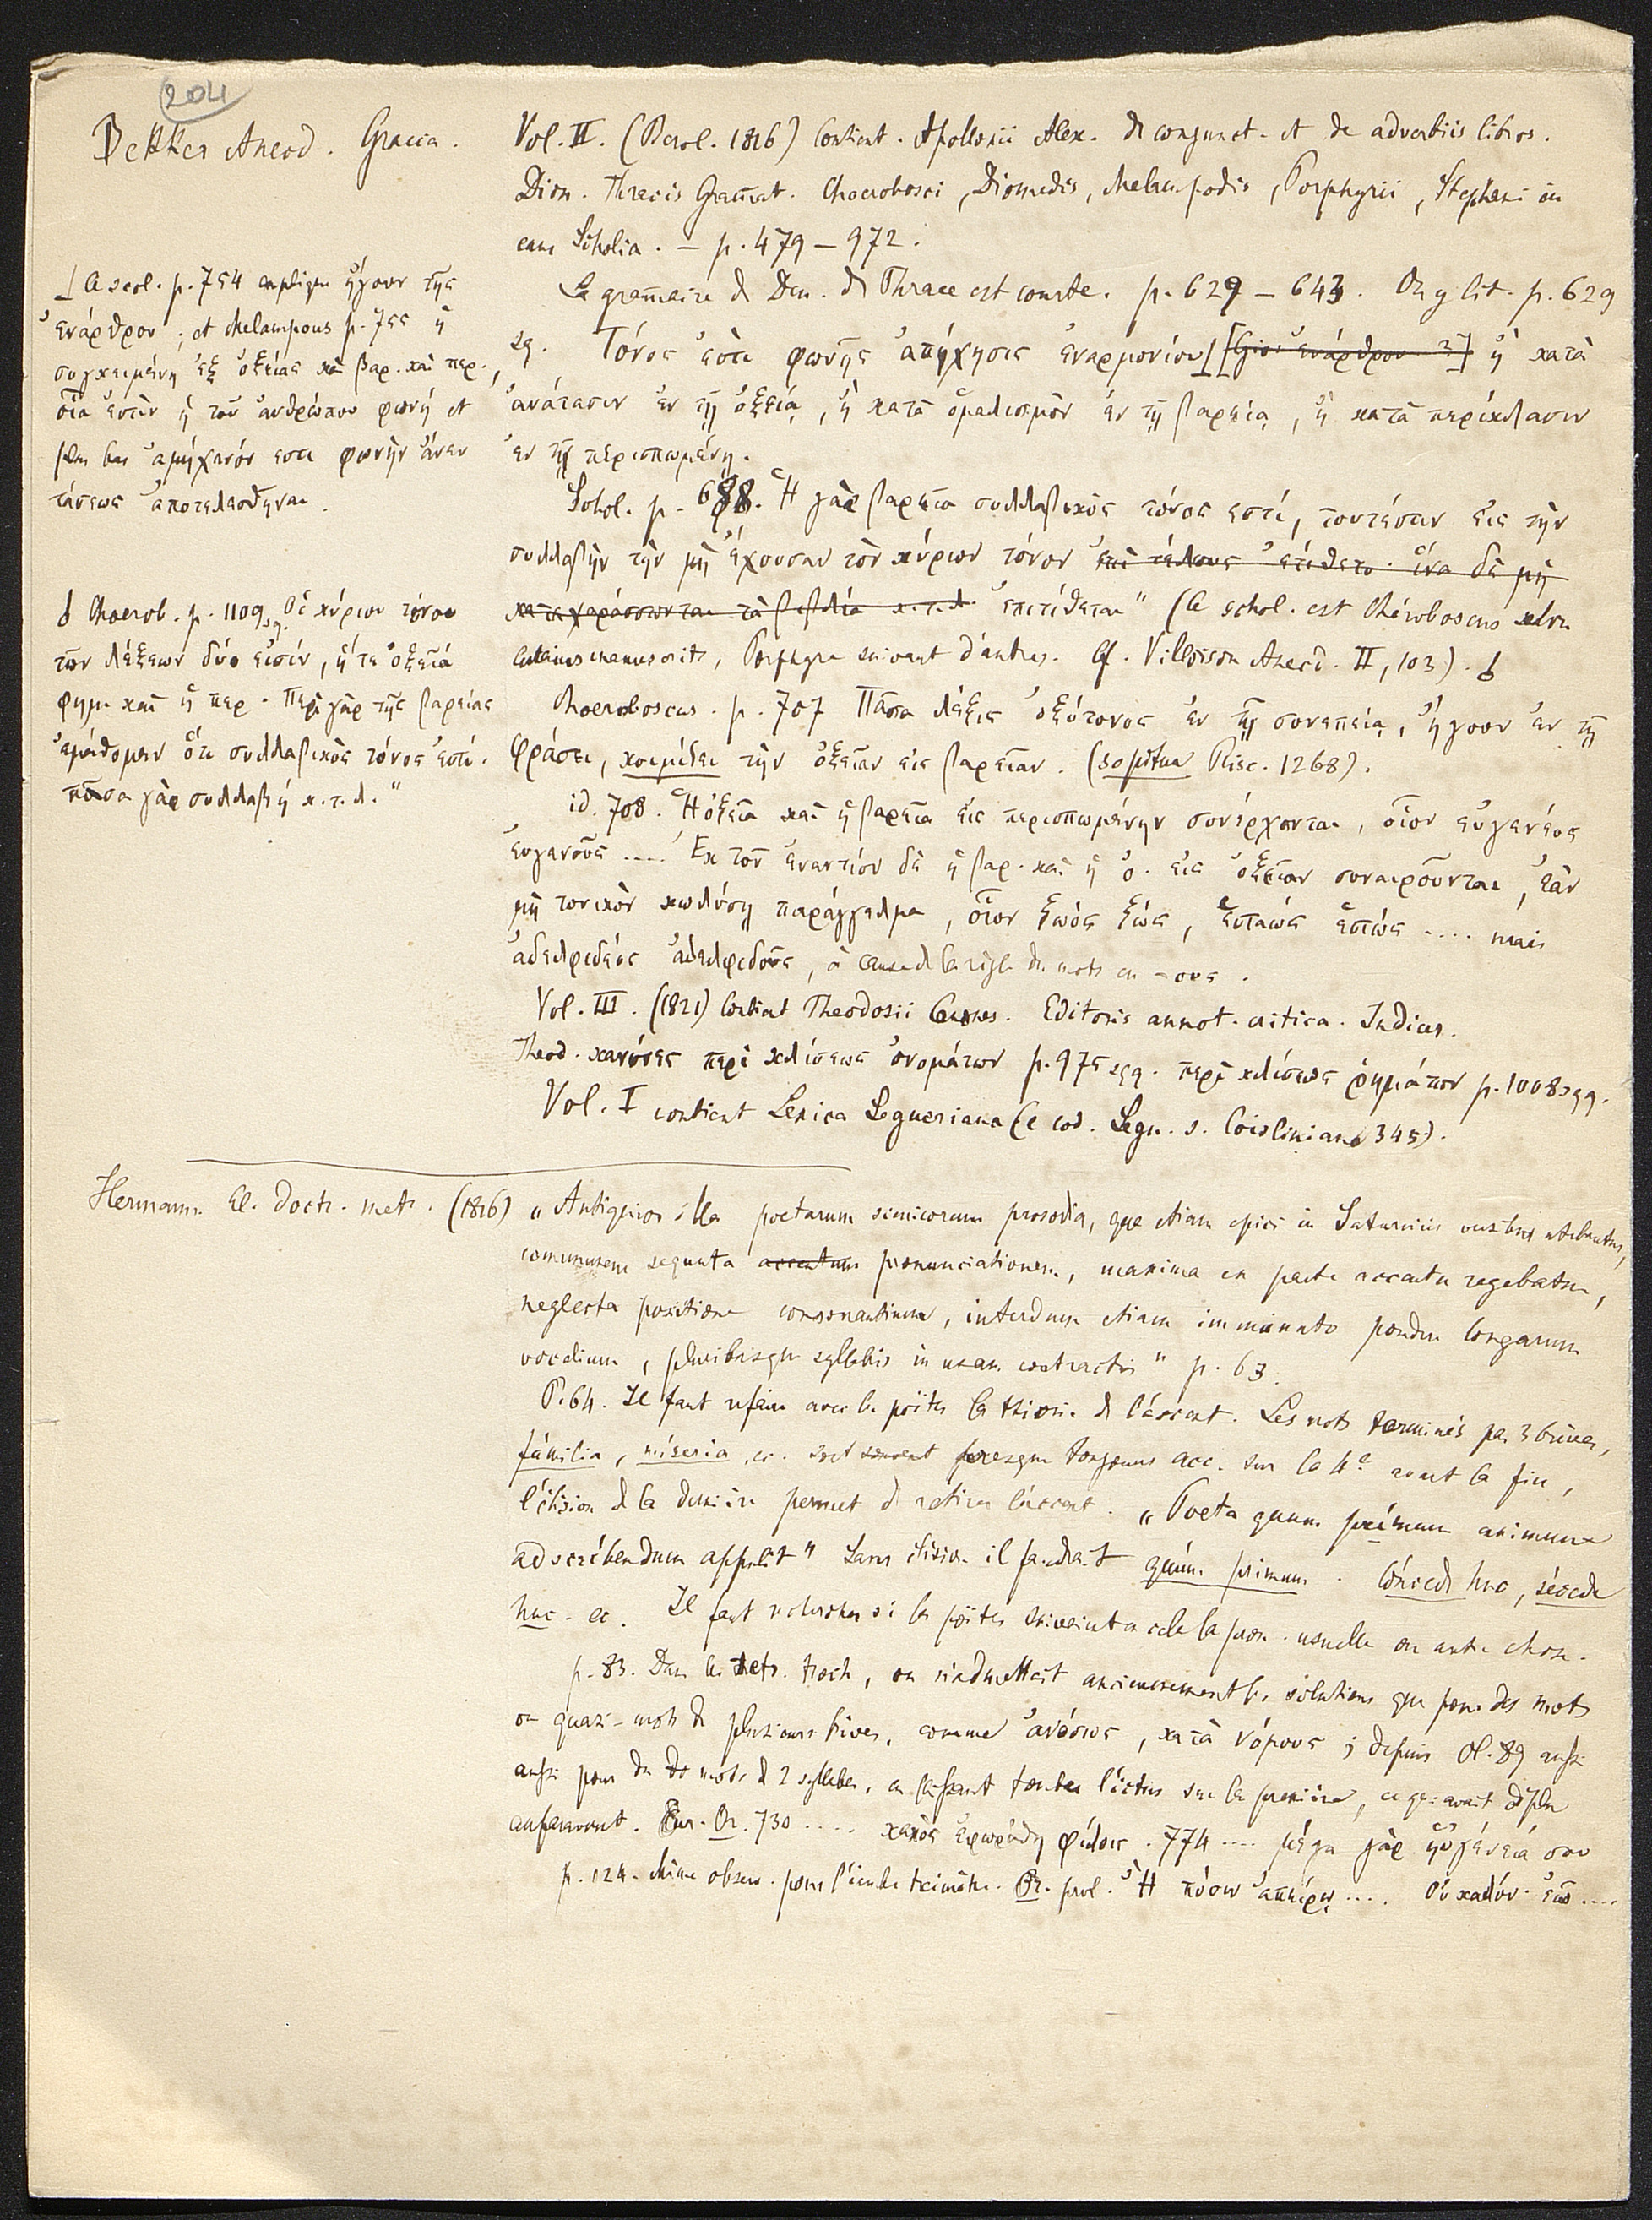 204
Bekker Anecd. Graeca.
Vol. II. (Berol. 1816) Contient. Apollonii Alex. de conjunct. et de adverbiis libros.
Dion. Thracis Grammat. Choerobosci, Diomedis, Melampodis, Porphyrii, Stephani in
eam Scholia. — p. 479 — 972.
La grammaire de Den. de Thrace est courte. p. 629 — 643. On y lit. p. 629
sq. Τόνος ἐστι φωνῆς ἀπήχησις ἐναρμονίου ⊥ [ἐνάρθρου ?] ἢ κατὰ
ἀνάτασιν ἐν τῇ ὀξείᾳ, ἢ κατὰ ὁμαλισμὸν ἐν τῇ βαρείᾳ, ἢ κατὰ περίκλασιν
ἐν τῇ περισπωμένῃ.
⊥ le scol. p. 754 explique ἤγουν τῆς
ἐνάρθρου; et Melampous p. 755 ἡ
συγκειμένη ἐξ ὀξείας κὰι βαρ. καὶ περ.,
οἵα ἐστὶν ἡ τοῦ ἀνθρώπου φωνή et
plus bas ἀμήχανόν εστι φωνὴν ἄνευ
τάσεως ἀποτελεσθῆναι.
Schol. p. 688. Ἡ γὰρ βαρεῖα συλλαβικὸς τόνος εστί, τουτέστιν εἰς τὴν
συλλαβὴν τὴν μὴ ἔχουσαν τὸν κύριον τόνον ἐπὶ τέλους ἐτίθετο. ἵνα δὲ μὴ
καταχαράσσωνται τὰ βιβλία κ.τ.λ. ἐπιτίθεται" (le schol. est Chéroboscus selon
certains manuscrits, Porphyre suivant d'autres. Cf. Villoison Anecd. II, 103). ɟ
ɟ Choerob. p. 1109 sq. Οἱ κύριοι τόνοι
τῶν λέξεων δύο εἰσίν, ἥ τε ὀξεῖά
φημι καὶ ἡ περ. Περὶ γὰρ τῆς βαρείας
ἐμάθομεν ὅτι συλλαβικὸς τόνος ἐστί.
πᾶσα γὰρ συλλαβὴ κ.τ.λ."
Choeroboscus. p. 707 Πᾶσα λέξις ὀξύτονος ἐν τῇ συνεπείᾳ, ἤγουν ἐν τῇ
φράσει, κοιμίζει τὴν ὀξεῖαν εἰς βαρεῖαν. (sopitur Prisc. 1268).
id. 708. Ἡ ὀξεῖα καὶ ἡ βαρεῖα εἰς περισπωμένην συνέρχονται, οἷον εὐγενέος
εὐγενοῦς .... Ἐκ τοῦ ἐναντίου δὲ ἡ βαρ. καὶ ἡ ὀ. εἰς ὀξεῖαν συναιροῦνται, ἐὰν
μὴ τονικὸν κωλύσῃ παράγγελμα, οἷον ζωός ζώς, ἑσταώς ἑστώς .... mais
ἀδελφιδεός ἀδελφιδοῦς, à cause de la règle des mots en -ους.
Vol. III. (1821) Contient Theodosii Canones. Editoris annot. critica. Indices.
Theod. κανόνες περὶ κλίσεως ὀνομάτων p. 975 sqq. περὶ κλίσεως ῥημάτων p. 1008 sqq.
Vol. I contient Lexica Segueriana (e cod. Segu. s. Coisliniano 345).
Hermann El. doctr. metr. (1816) „Antiquior illa poetarum scenicorum prosodia, qua etiam epici in Saturniis versibus utebantur,
communem sequuta accentum pronunciationem, maxima ex parte accentu regebatur,
neglecta positione consonantium, interdum etiam imminuto pondere longarum
vocalium, pluribusque syllabis in unam contractis" p. 63.
P. 64. Il faut refaire avec les poëtes la théorie de l'accent. Les mots terminés par 3 brèves,
fámilia, míseria, ec. sont souvent presque toujours acc. sur la 4e avant la fin,
l'élision de la dernière permet de retirer l'accent. „Poeta quum prímum animum
ad scríbendum appulit" Sans élision il faudrait quúm primum. Cóncede huc, sécede
huc. ec. Il faut rechercher si les poëtes suivaient en cela la pron. usuelle ou autre chose.
p. 83. Dans les tetr. troch, on n'admettait anciennement les solutions que pour des mots
ou quasi-mots de plusieurs brèves, comme ἀνόσιος, κατὰ νόμους; depuis Ol. 89 aussi
aussi pour des mots de 2 syllabes, en faisant tomber l'ictus sur la première, ce qui avait déplu
auparavant. Eur. Or. 730 .... κακὸς ἐφωράθη φίλοις. 774 .... μέγα γὰρ ηὑγένειά σου
p. 124. Même observ. pour l'iambe trimètre. Or. prol. Ἢ πόσιν .... Οὐ καλόν. ἐῶ ....